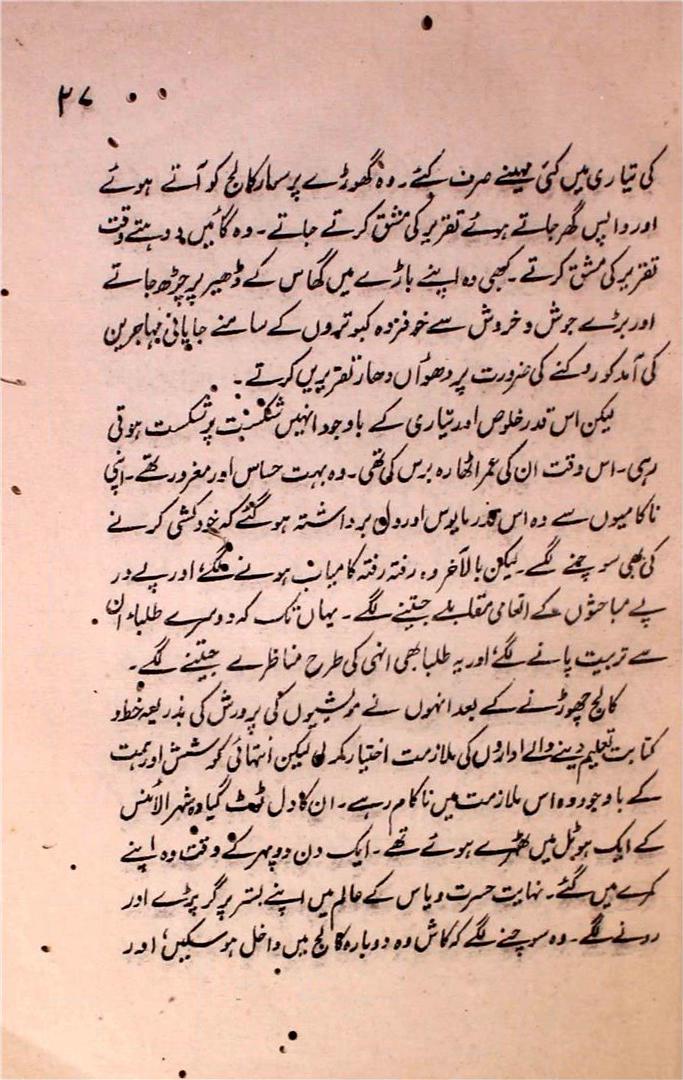 ۲۷
کی تیاری میں کئی مہینے صرف کئے۔ وہ گھوڑے پر سوار کالج کو آتے ہوئے
اور واپس گھر جاتے ہوئے تقریر کی مشق کرتے جاتے۔ وہ گائیں دوہتے وقت
تقریر کی مشق کرتے۔ کبھی وہ اپنے باڑے میں گھاس کے ڈھیر پر چڑھ جاتے
اور بڑے جوش و خروش سے خوفزدہ کبوتروں کے سامنے جاپانی مہاجرین
کی آمد کو روکنے کی ضرورت پر دھواں دھار تقریریں کرتے۔
لیکن اس قدر خلوص اور تیاری کے باوجود انہیں شکست پر شکست ہوتی
رہی۔ اس وقت ان کی عمر اٹھارہ برس کی تھی۔ وہ بہت حساس اور مغرور تھے۔ اپنی
ناکامیوں سے وہ اس قدر مایوس اور دل برداشتہ ہو گئے کہ خودکشی کرنے
کی بھی سوچنے لگے۔ لیکن بالآخر وہ رفتہ رفتہ کامیاب ہونے لگے اور پے در
پے مباحثوں کے انعامی مقابلے جیتنے لگے۔ یہاں تک کہ دوسرے طلباء ان
سے تربیت پانے لگے اور یہ طلبا بھی انہی کی طرح مناظرے جیتنے لگے۔
کالج چھوڑنے کے بعد انہوں نے مویشیوں کی پرورش کی بذریعہ خط و
کتابت تعلیم دینے والے اداروں کی ملازمت اختیار کر لی لیکن انتہائی کوشش اور ہمت
کے باوجود وہ اس ملازمت میں ناکام رہے۔ ان کا دل ٹوٹ گیا وہ شہر الائنس
کے ایک ہوٹل میں ٹھہرے ہوئے تھے۔ ایک دن دوپہر کے وقت وہ اپنے
کمرے میں گئے۔ نہایت حسرت و یاس کے عالم میں اپنے بستر پر گر پڑے اور
رونے لگے۔ وہ سوچنے لگے کہ کاش وہ دوبارہ کالج میں داخل ہو سکیں، اور